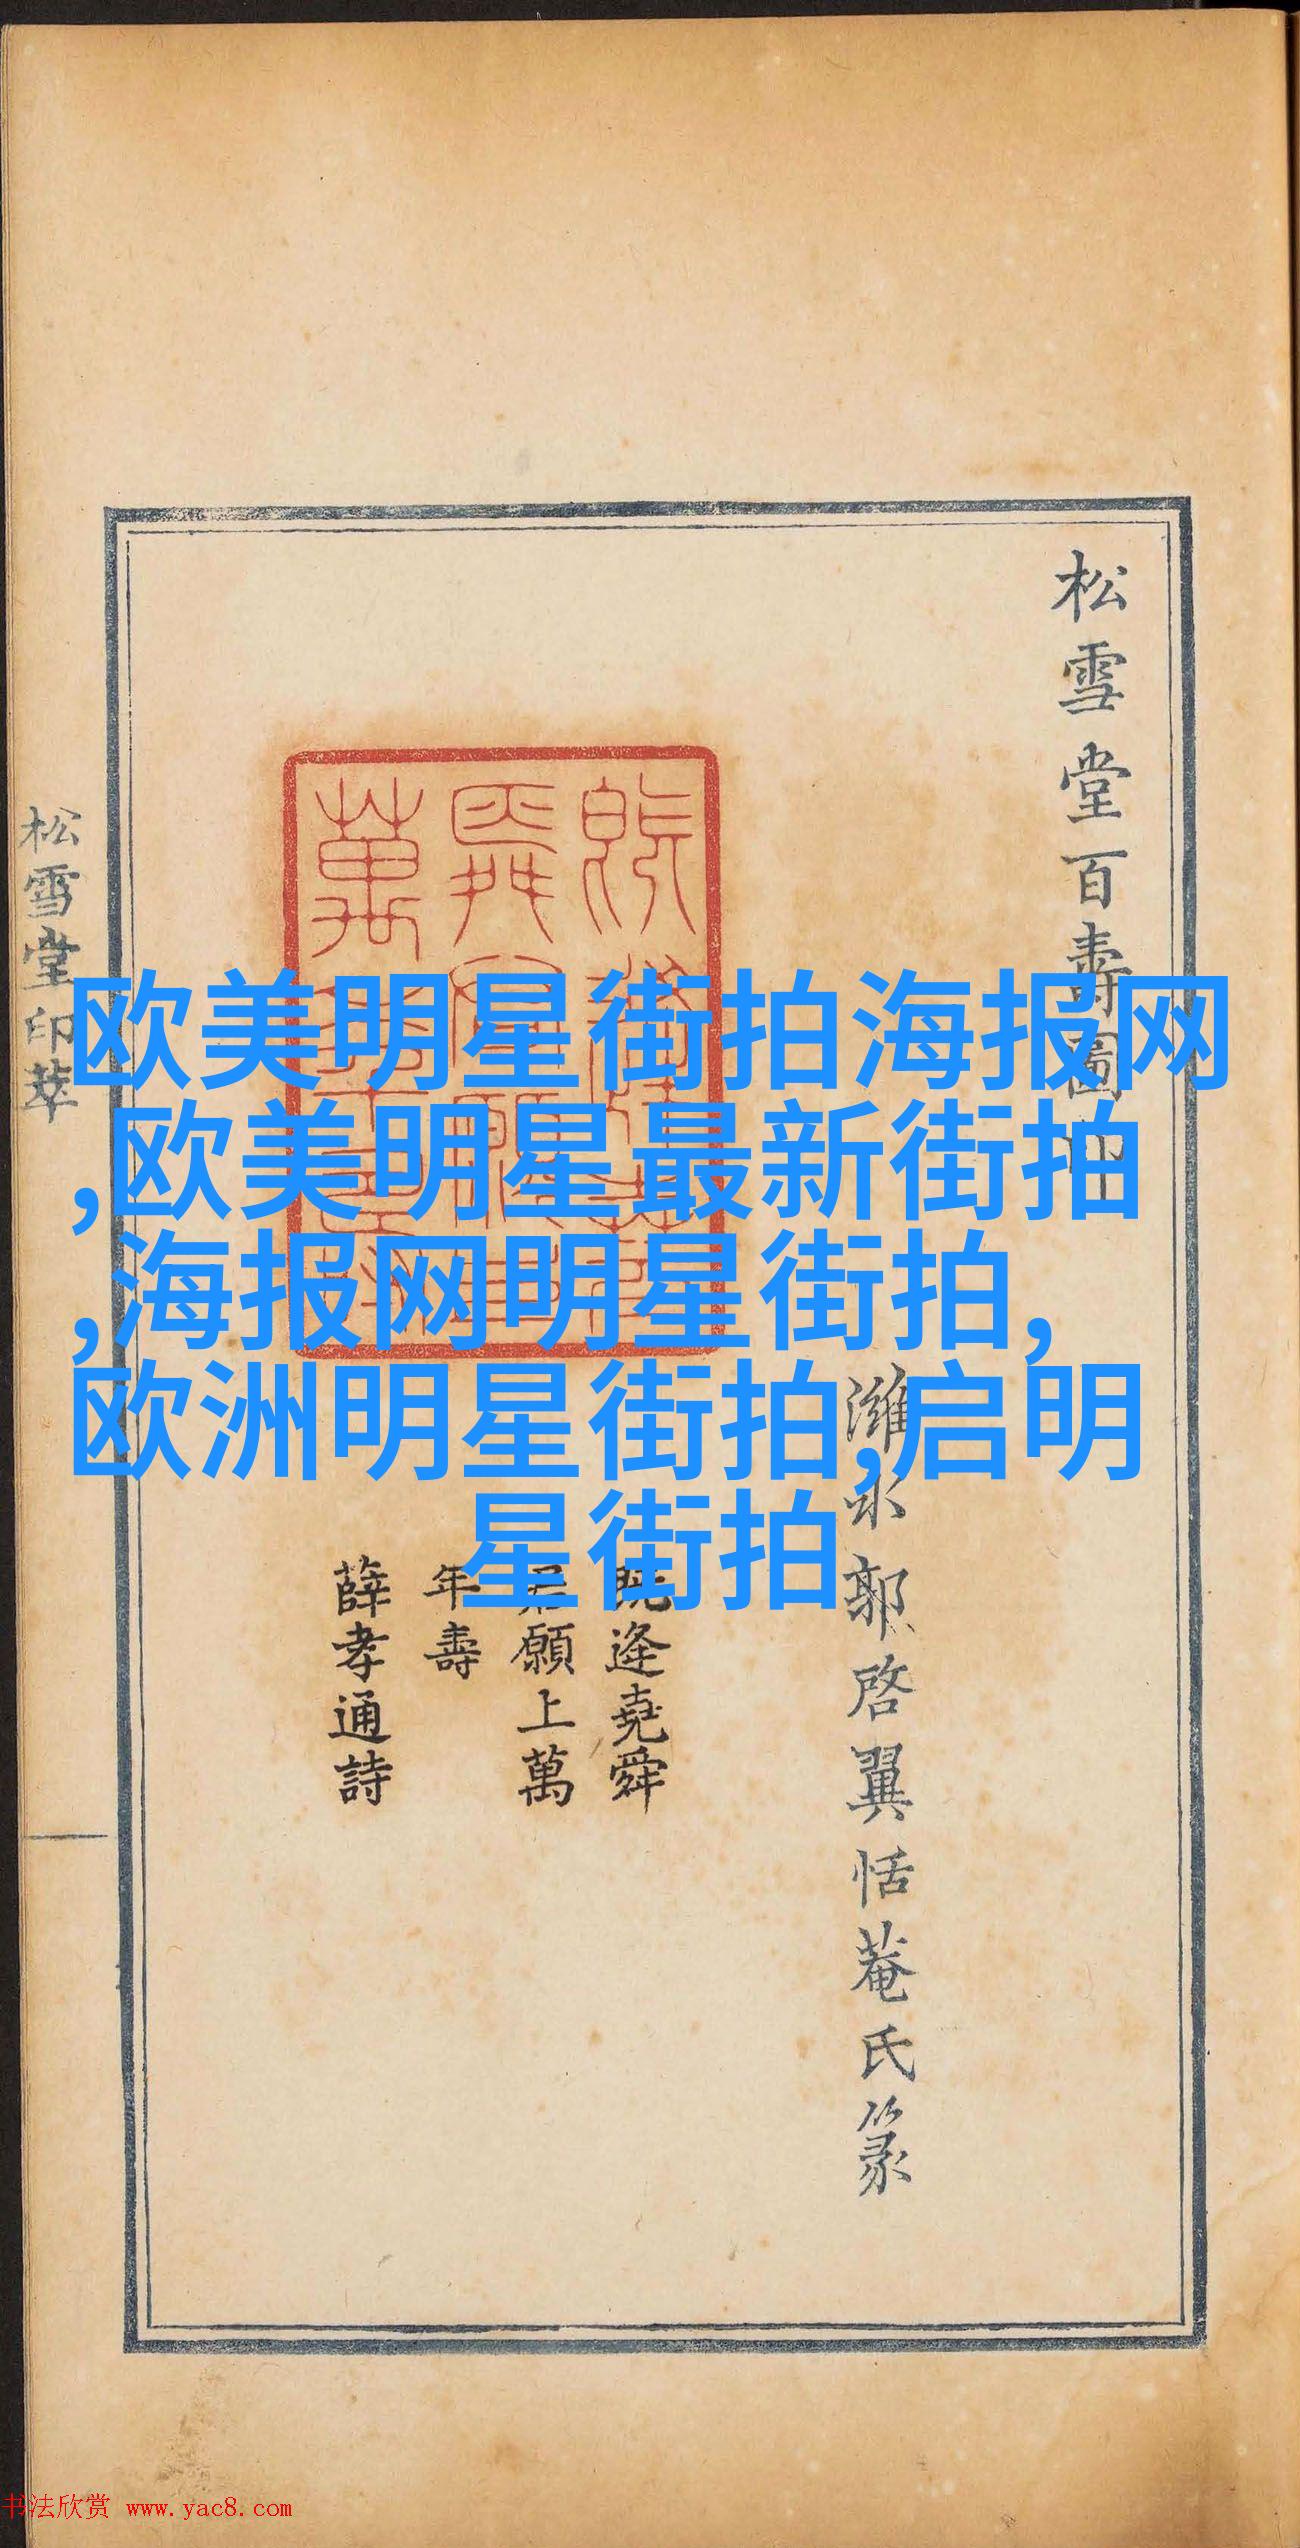 松雪堂百壽圖印
濰水郭啓翼恬菴氏篆
既逢堯舜
君願上萬
年壽
薛孝通詩
松雪堂印萃
欧美明星街拍海报网
,欧美明星最新街拍
,海报网明星街拍,
欧洲明星街拍,启明
星街拍
书法欣赏 www.yac8.com